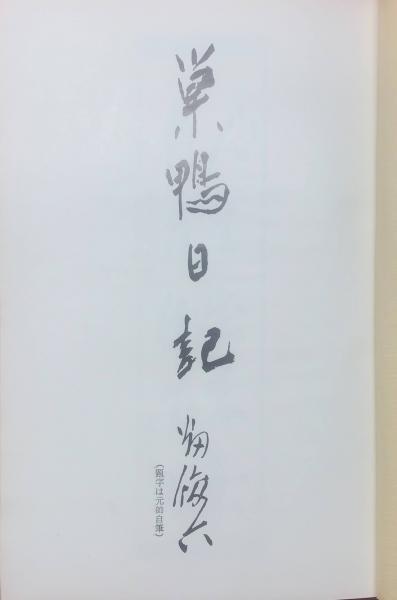 巣鴨日記
畑俊六
(題字は元帥自筆)